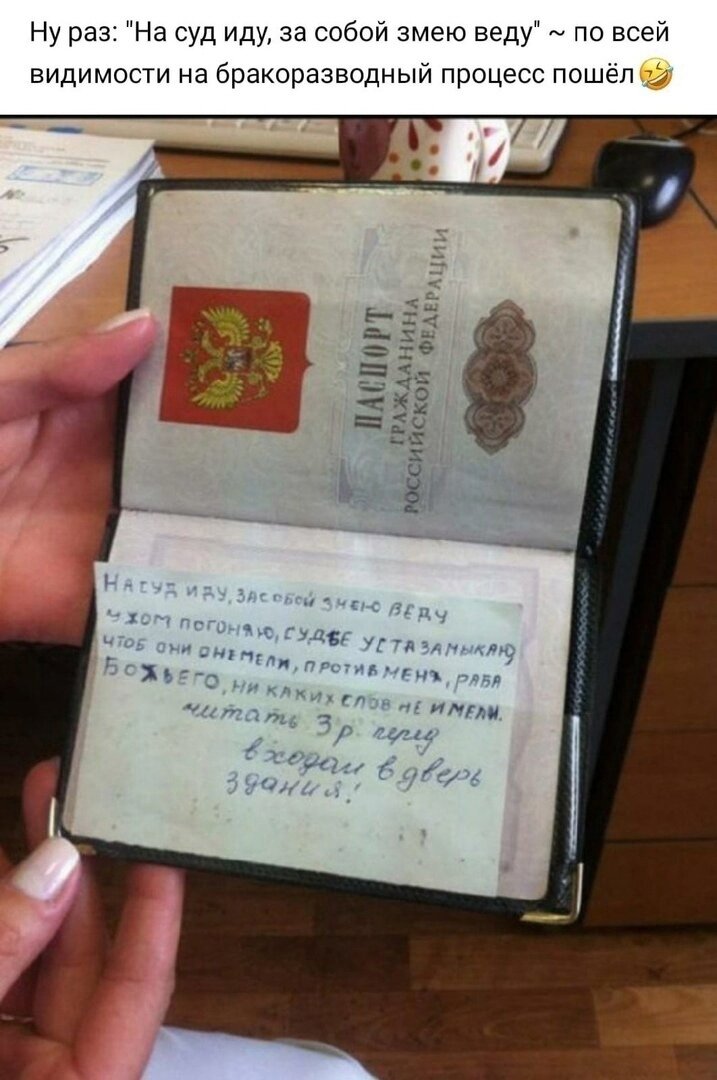 Ну раз: "На суд иду, за собой змею веду" ~ по всей
видимости на бракоразводный процесс пошёл🤣
ПАСПОРТ
ГРАЖДАНИНА
РОССИЙСКОЙ ФЕДЕРАЦИИ
НА СУД ИДУ, ЗА СОБОЙ ЗМЕЮ ВЕДУ
УХОМ ПОГОНЯЮ, СУДЬЕ УСТА ЗАМЫКАЮ
ЧТОБ ОНИ ОНЕМЕЛИ, ПРОТИВ МЕНЯ, РАБА
БОЖЬЕГО, НИ КАКИХ СЛОВ НЕ ИМЕЛИ.
читать 3 р. перед
входом в дверь
здания!